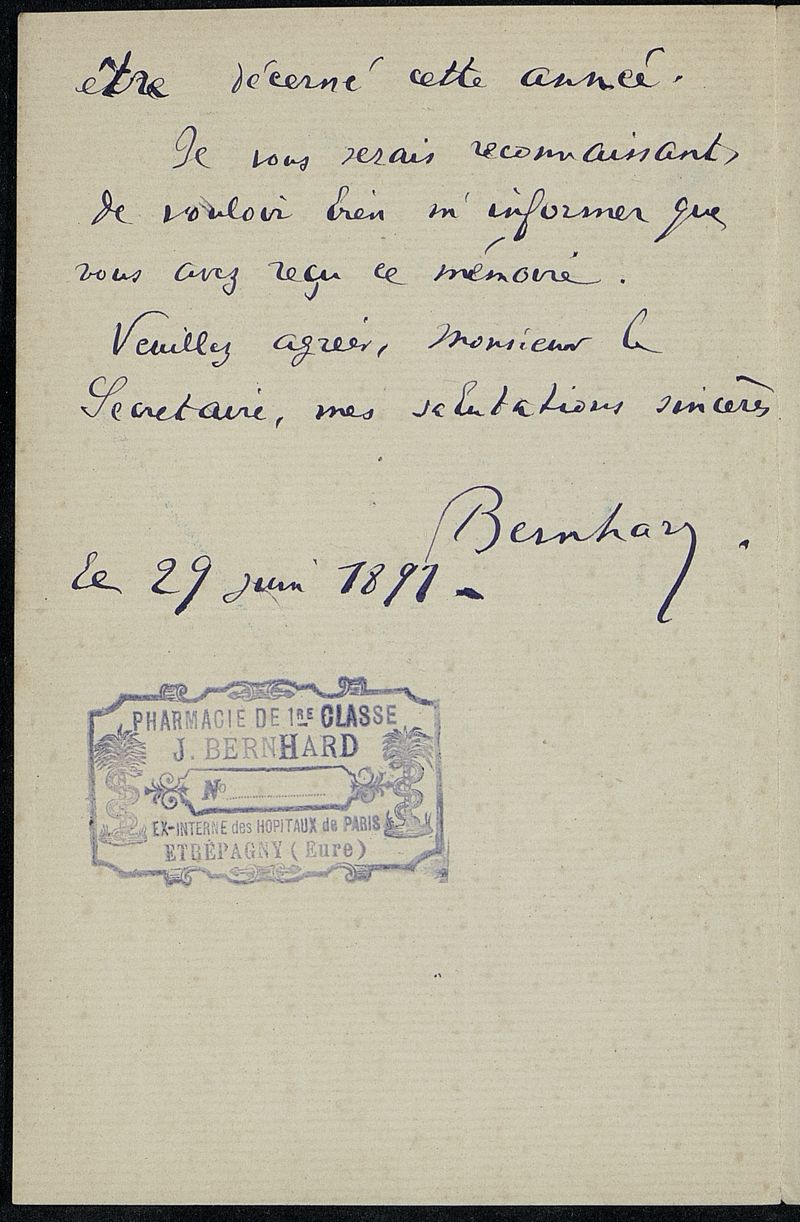 être décerné cette année.
Je vous serais reconnaissant,
de vouloir bien m'informer que
vous avez reçu ce mémoire.
Veuillez agréer, Monsieur le
Secretaire, mes salutations sincères
Bernhard.
le 29 juin 1891 –
PHARMACIE DE 1RE CLASSE
J. BERNHARD
No
EX-INTERNE des HOPITAUX de PARIS
ETRÉPAGNY (Eure)